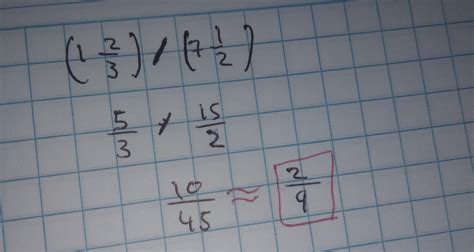 (1 2/3) / (7 1/2)
5/3 / 15/2
10/45 ≈ 2/9